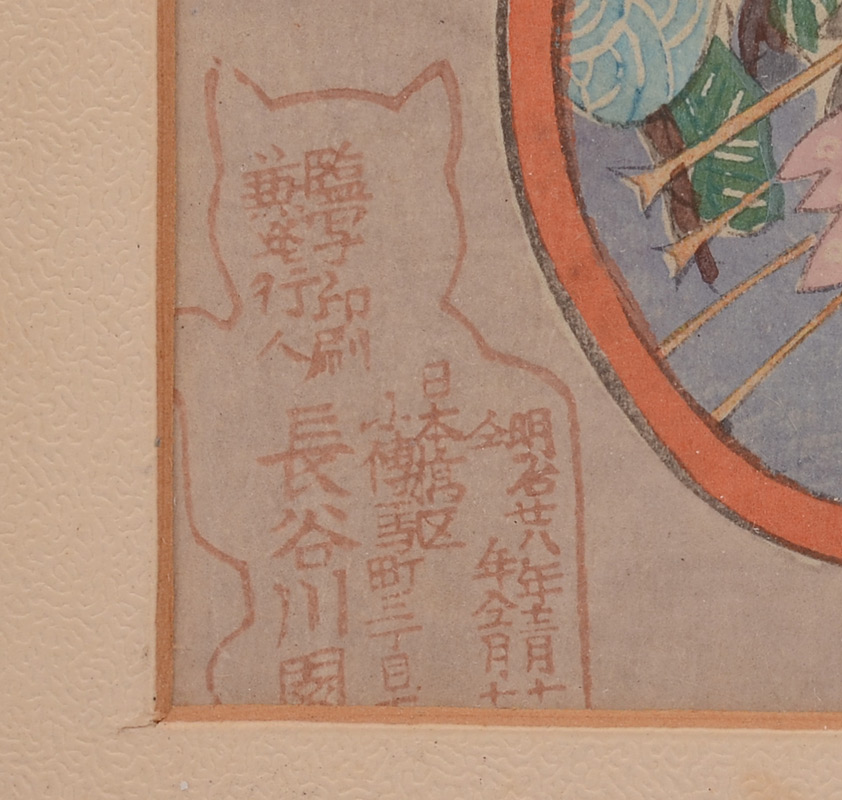 明治廿八年十二月十
仝年仝月七
日本橋区
小傳馬町三丁目
臨写印刷
兼発行人
長谷川